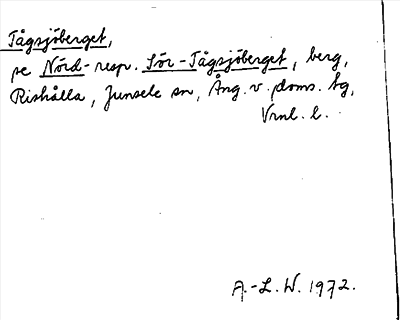 Tågsjöberget,
se Nörd- resp. Sör-Tågsjöberget, berg,
Rishålla, Junsele sn, Ång. v. doms. tg,
Vrnl. l.
A.-L. W. 1972.